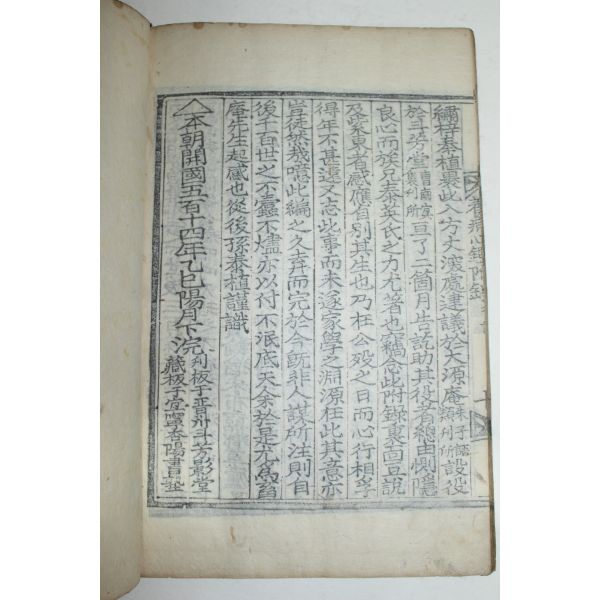 繡梓泰植裹此入方丈滾處建議於大源庵朱子語類刊所設役
於斗芳堂曺南冥集刊所亘了二箇月告訖助其役者總由惻隱
良心而族兄泰英氏之力尤著也竊思此附錄裏面豆說
及紫東者感應自別其生也乃在公歿之日而心行相孚
得年不甚遠又志此事而未遂家學之淵源在此其意亦
豈徒然哉噫此編之久弆而完於今旣非人謀所注則自
後千百世之不蠹不燼亦以付不泯底天余於是尤爲
庵先生起感也從後孫泰植謹識
本朝開國五百十四年乙巳陽月下浣刊板于晋州斗芳影堂
藏板于宜寧香陽書塾
心錄附錄